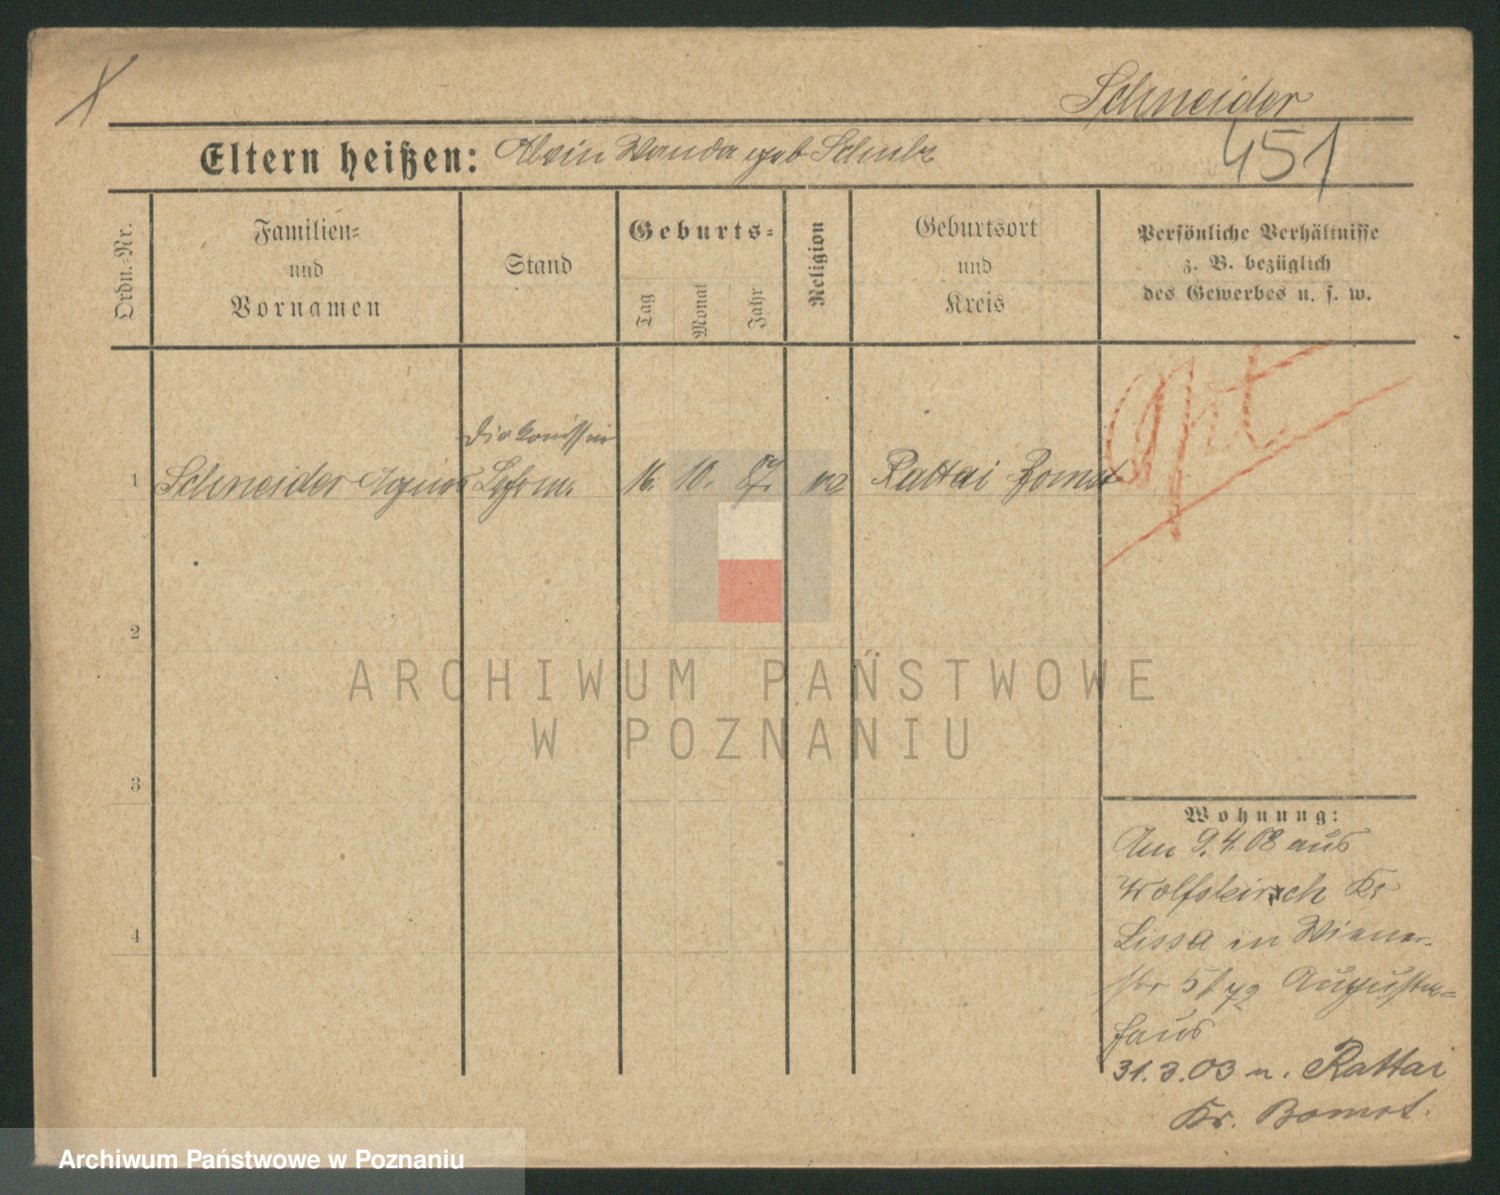 Schneider
451
Eltern heißen: Alwin Wanda geb Schulz
Ordn.-Nr.
Familien-
und
Vornamen
Stand
Geburts-
Tag
Monat
Jahr
Religion
Geburtsort
und
Kreis
Persönliche Verhältnisse
z. B. bezüglich
des Gewerbes u. s. w.
Diakonissin
1 Schneider Agnes 16. 10. 87. Rattai Bomst
2
ARCHIWUM PAŃSTWOWE
W POZNANIU
3
Wohnung:
Am 9.4.08 aus
Wolfskirch Kr
Lissa in Wiener-
str 5/72 Augusten-
haus
31.3.03 n. Rattai
Kr. Bomst.
4
Archiwum Państwowe w Poznaniu